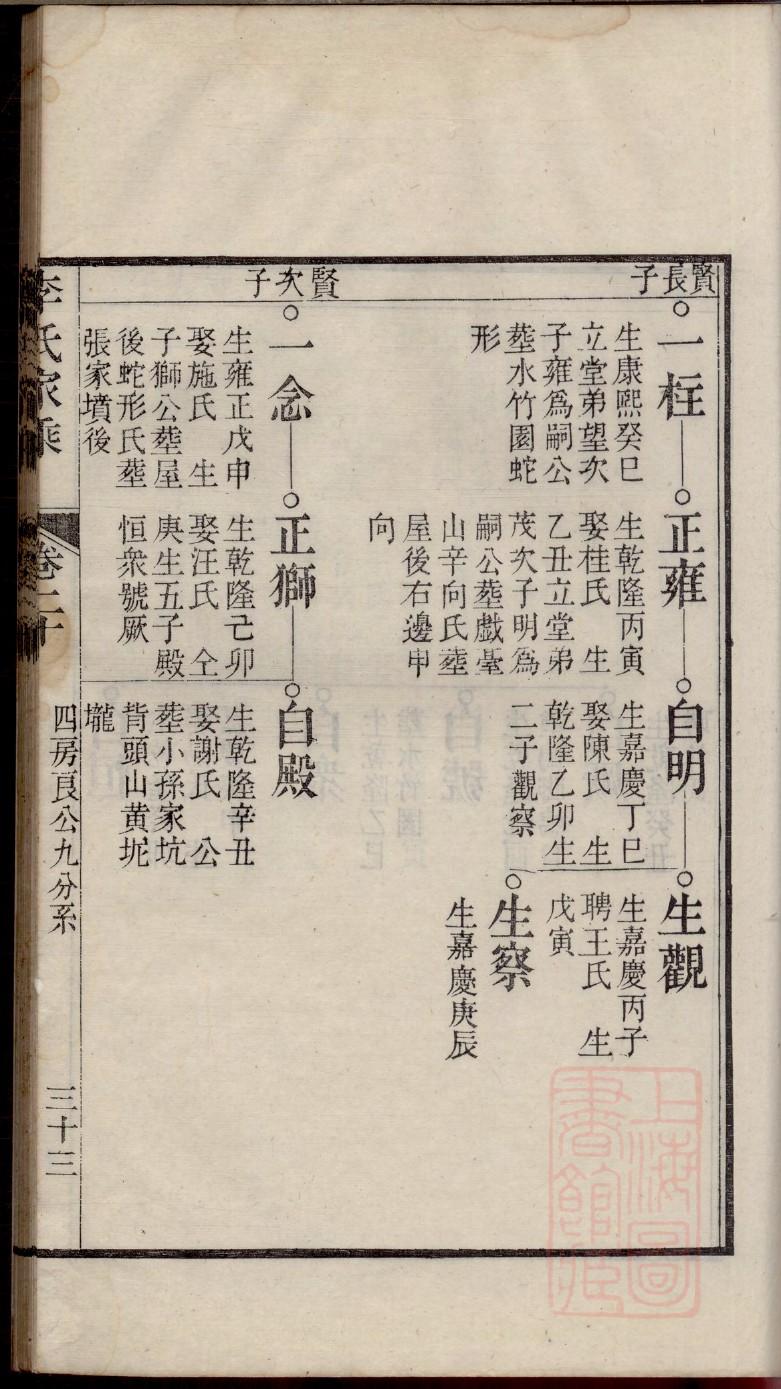 賢長子
一柱
生康熙癸巳
立堂弟望次
子雍爲嗣公
塟水竹園蛇
形
正雍
生乾隆丙寅
娶桂氏 生
乙丑立堂弟
茂次子明爲
嗣公塟戲臺
山辛向氏塟
屋後右邊申
向
自明
生嘉慶丁巳
娶陳氏 生
乾隆乙卯生
二子觀察
生觀
生嘉慶丙子
聘王氏 生
戊寅
生察
生嘉慶庚辰
賢次子
一念
生雍正戊申
娶施氏 生
子獅公塟屋
後蛇形氏塟
張家墳後
正獅
生乾隆己卯
娶汪氏 仝
庚生五子殿
恒衆號厥
自殿
生乾隆辛丑
娶謝氏 公
塟小孫家坑
背頭山黄坭
壠
李氏家乘
卷二十
四房良公九分系
三十三
上海圖
書館藏